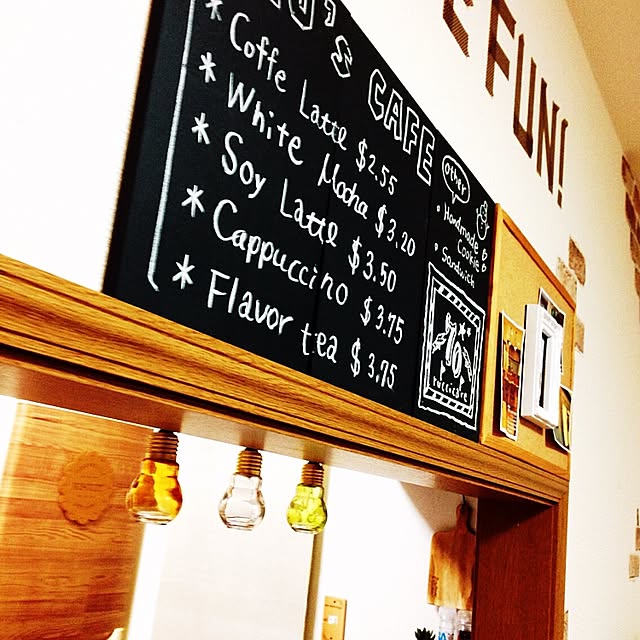 'S CAFE
* Coffe Latte $2.55
* White Mocha $3.20
* Soy Latte $3.50
* Cappuccino $3.75
* Flavor tea $3.75
other
• Handmade Cookie
• Sandwich
70
FUN!